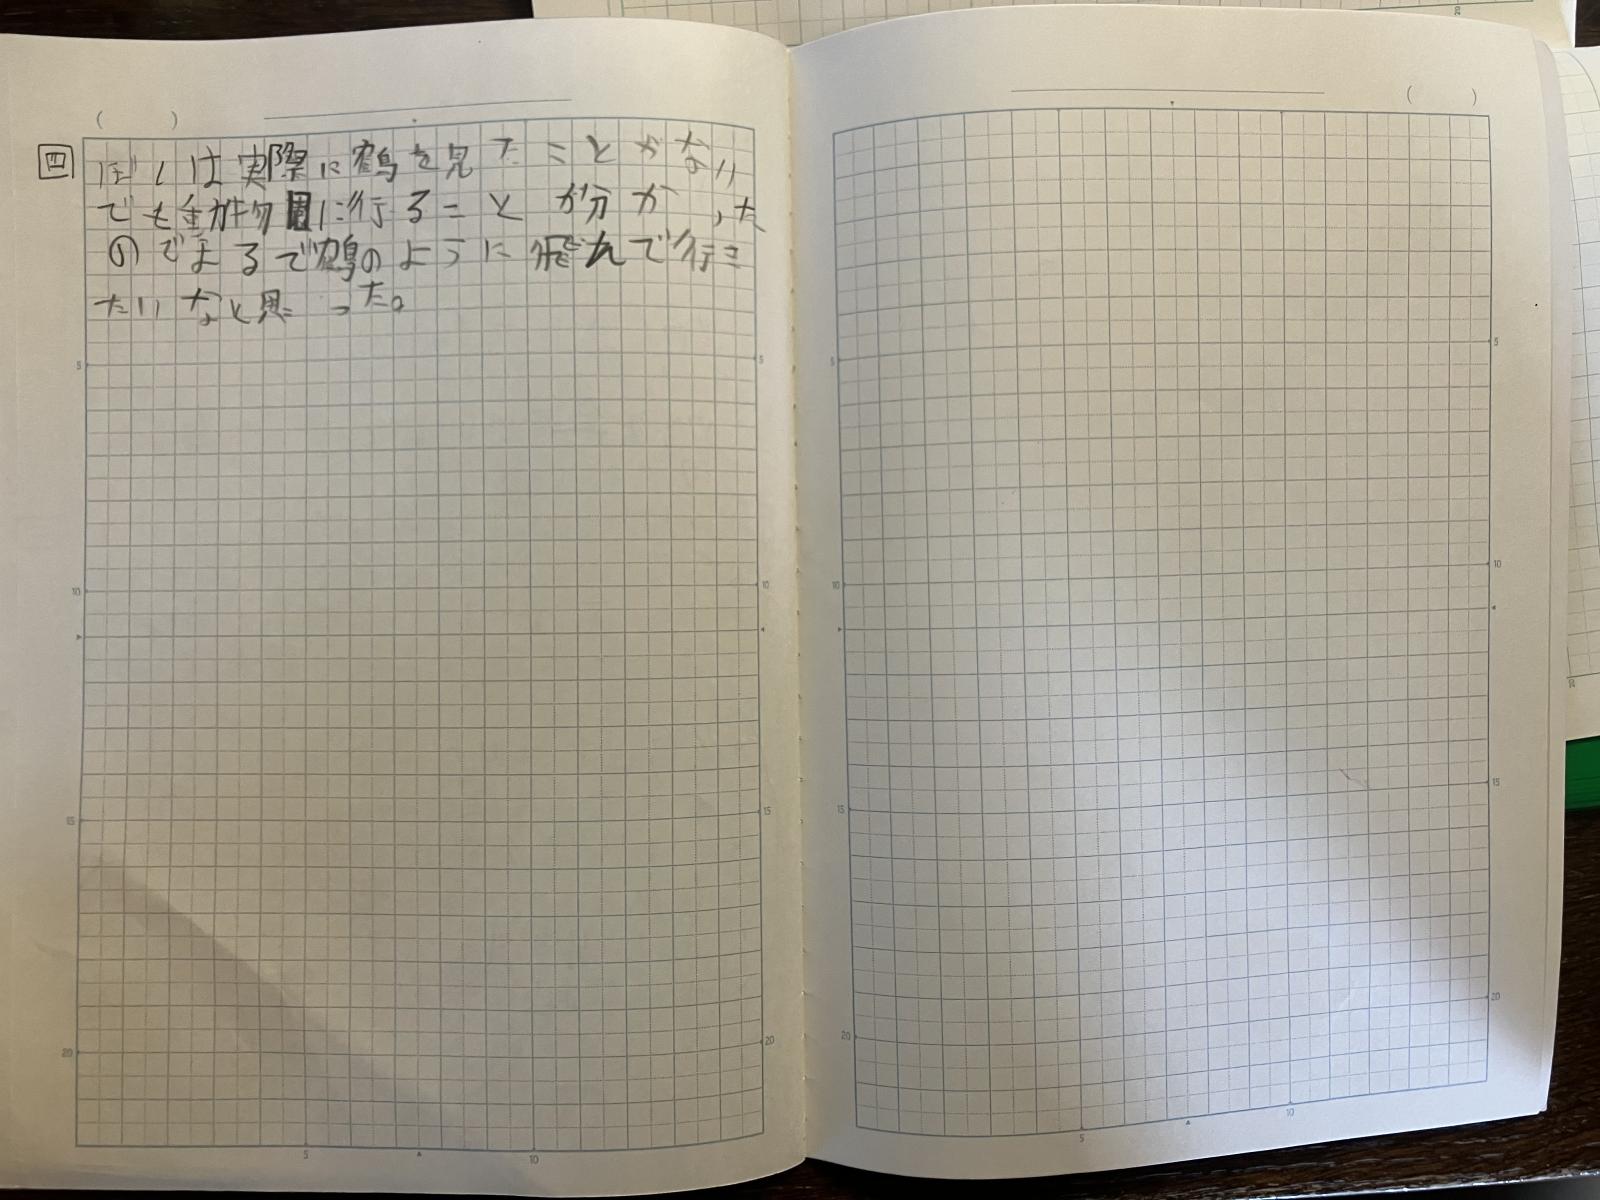 四 ぼくは実際に鶴を見たことがない
でも動物園に行ることが分かった
のでまるで鶴のように飛んで行き
たいなと思った。
( )
( )
5
10
15
20
5
10
15
20
5
10
5
10
15
20
5
10
15
20
5
10
20
20